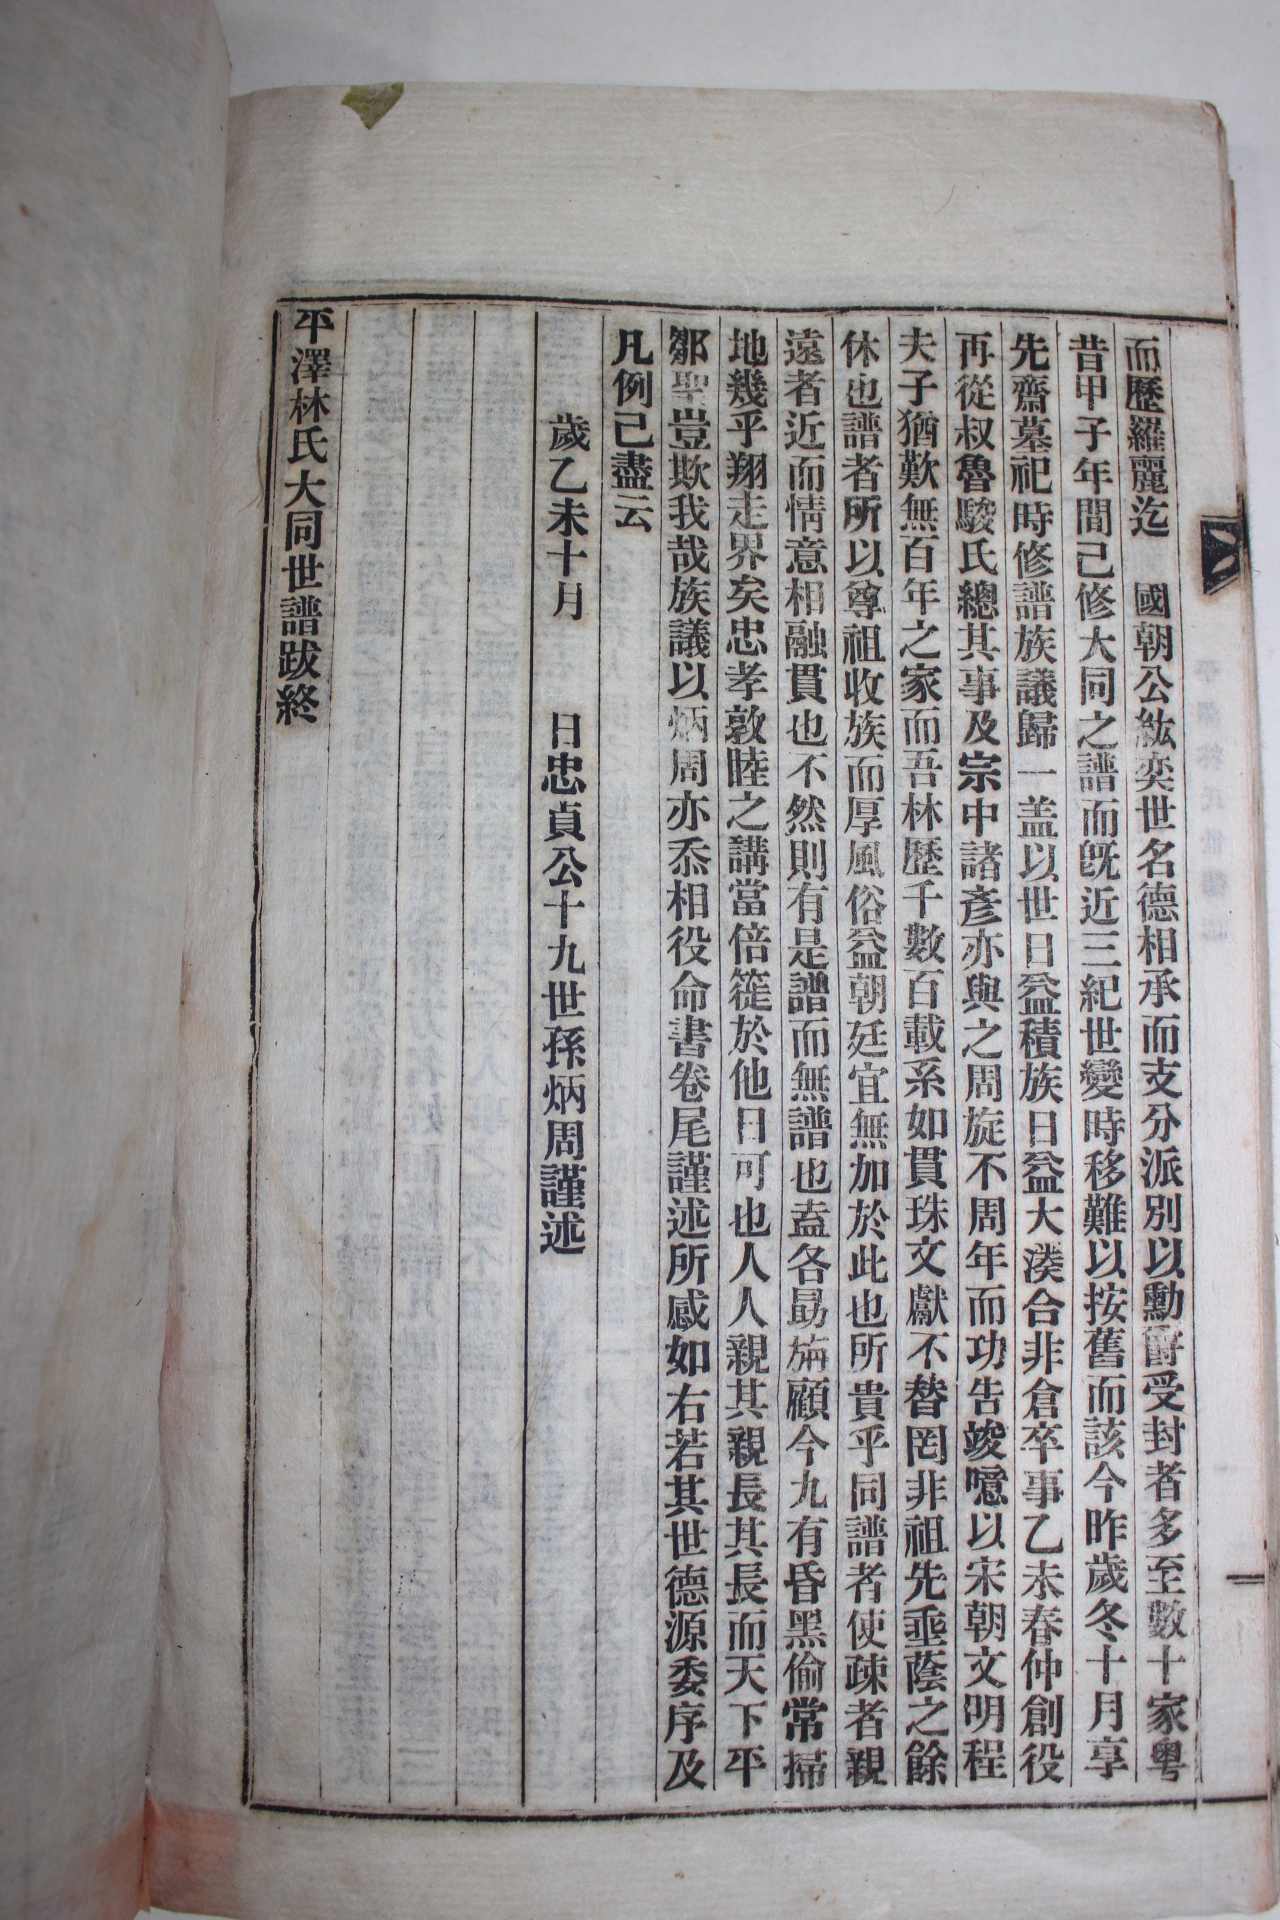 而歷羅麗迄　國朝公紘奕世名德相承而支分派別以勳爵受封者多至數十家粤
昔甲子年間已修大同之譜而旣近三紀世變時移難以按舊而該今昨歲冬十月享
先齋墓祀時修譜族議歸一盖以世日益積族日益大湊合非倉卒事乙未春仲創役
再從叔魯駿氏總其事及宗中諸彥亦與之周旋不周年而功告竣噫以宋朝文明程
夫子猶歎無百年之家而吾林歷千數百載系如貫珠文獻不替罔非祖先埀蔭之餘
休也譜者所以尊祖收族而厚風俗益朝廷宜無加於此也所貴乎同譜者使疎者親
遠者近而情意相融貫也不然則有是譜而無譜也盍各勗旃顧今九有昏黑倫常掃
地幾乎翔走界矣忠孝敦睦之講當倍簁於他日可也人人親其親長其長而天下平
鄒聖豈欺我哉族議以炳周亦忝相役命書卷尾謹述所感如右若其世德源委序及
凡例已盡云
歲乙未十月　　日忠貞公十九世孫炳周謹述
平澤林氏大同世譜跋終